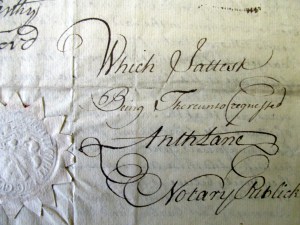 Which I attest
Being Thereunto requested
Anth Lane
Notary Publick